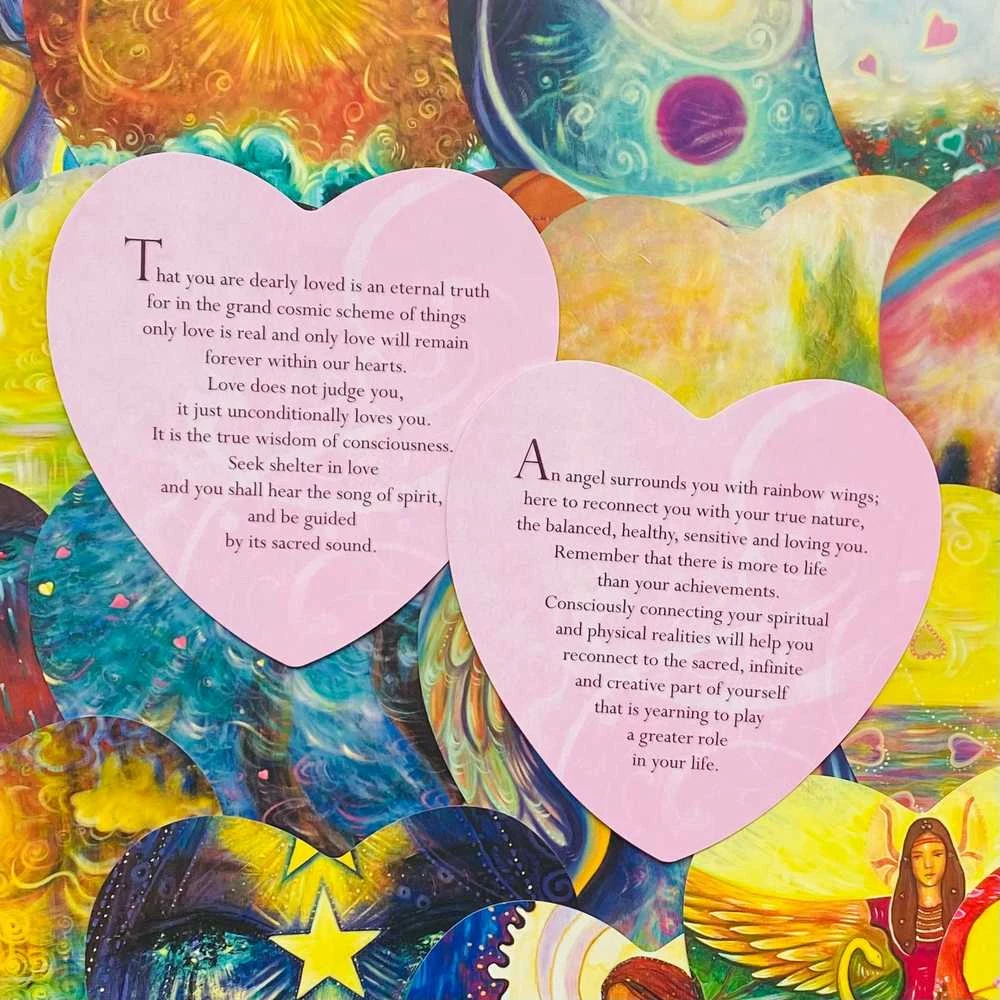 That you are dearly loved is an eternal truth
for in the grand cosmic scheme of things
only love is real and only love will remain
forever within our hearts.
Love does not judge you,
it just unconditionally loves you.
It is the true wisdom of consciousness.
Seek shelter in love
and you shall hear the song of spirit,
and be guided
by its sacred sound.
An angel surrounds you with rainbow wings;
here to reconnect you with your true nature,
the balanced, healthy, sensitive and loving you.
Remember that there is more to life
than your achievements.
Consciously connecting your spiritual
and physical realities will help you
reconnect to the sacred, infinite
and creative part of yourself
that is yearning to play
a greater role
in your life.